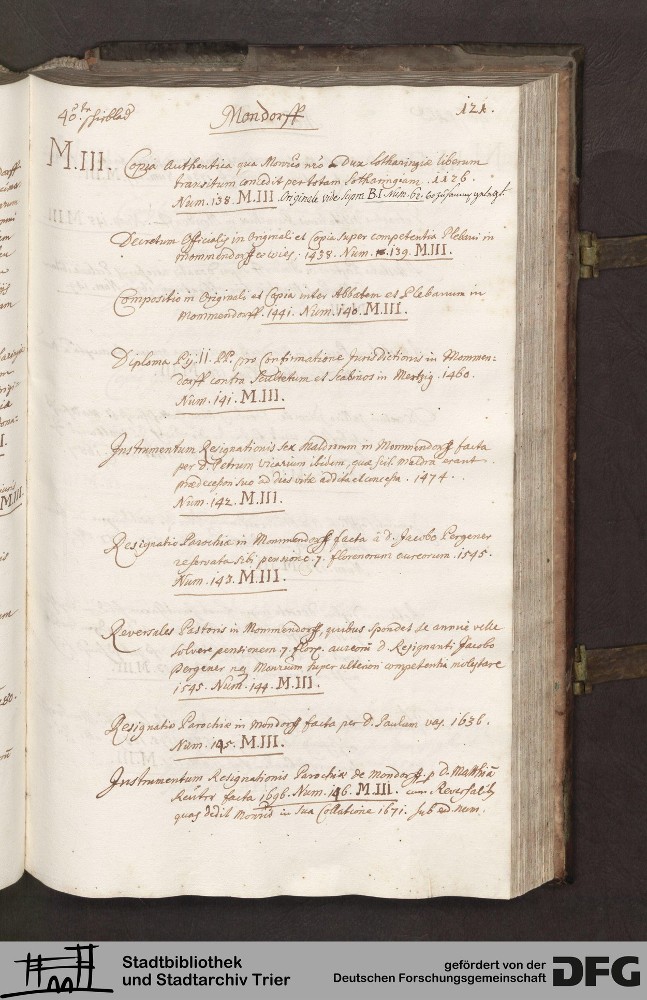 40 Mondorff 121.
M.III. Copia Authentica qua Monrio nro Dux Lotharingiæ liberum
transitum concedit per totam Lotharingiam. 1126.
Num. 138. M.III. Originale vide supra B.I. Num. 62.
Decretum Officialis in Originali et Copia super competentia Plebani in
Mommendorff et wies; 1438. Num. 139. M.III.
Compositio in Originali et Copia inter Abbatem et Plebanum in
Mommendorff. 1441. Num. 140. M.III.
Diploma Pij II. PP. pro Confirmatione Jurisdictionis in Mommen:
dorff contra Scultetum et Scabinos in Mertzig. 1460.
Num. 141. M.III.
Instrumentum Resignationis sex Maldrorum in Mommendorff facta
per D. Petrum vicarium ibidem, quæ scil. maldra erant
prædecessori suo ad dies vitæ addita et concessa. 1474.
Num. 142. M.III.
Resignatio Parochiæ in Mommendorff facta à d. Jacobo Pergener
reservata sibi pensione 7. florenorum aureorum. 1545.
Num. 143. M.III.
Reversales Pastoris in Mommendorff, quibus spondet se annuè velle
solvere pensionem 7 flor. aureorū D. Resignanti Jacobo
Pergener neq Monrium super ulteriori competentia molestare
1545. Num. 144. M.III.
Resignatio Parochiæ in Mondorff facta per D. Paulum 1636.
Num. 145. M.III.
Instrumentum Resignationis Parochiæ de Mondorff p D. Matthiā
facta 1696. Num. 146. M.III. cum Reversalib
quas dedit Monrio in sua Collatione 1671. sub eod. num.
M.III.
Stadtbibliothek
und Stadtarchiv Trier
gefördert von der
Deutschen Forschungsgemeinschaft
DFG